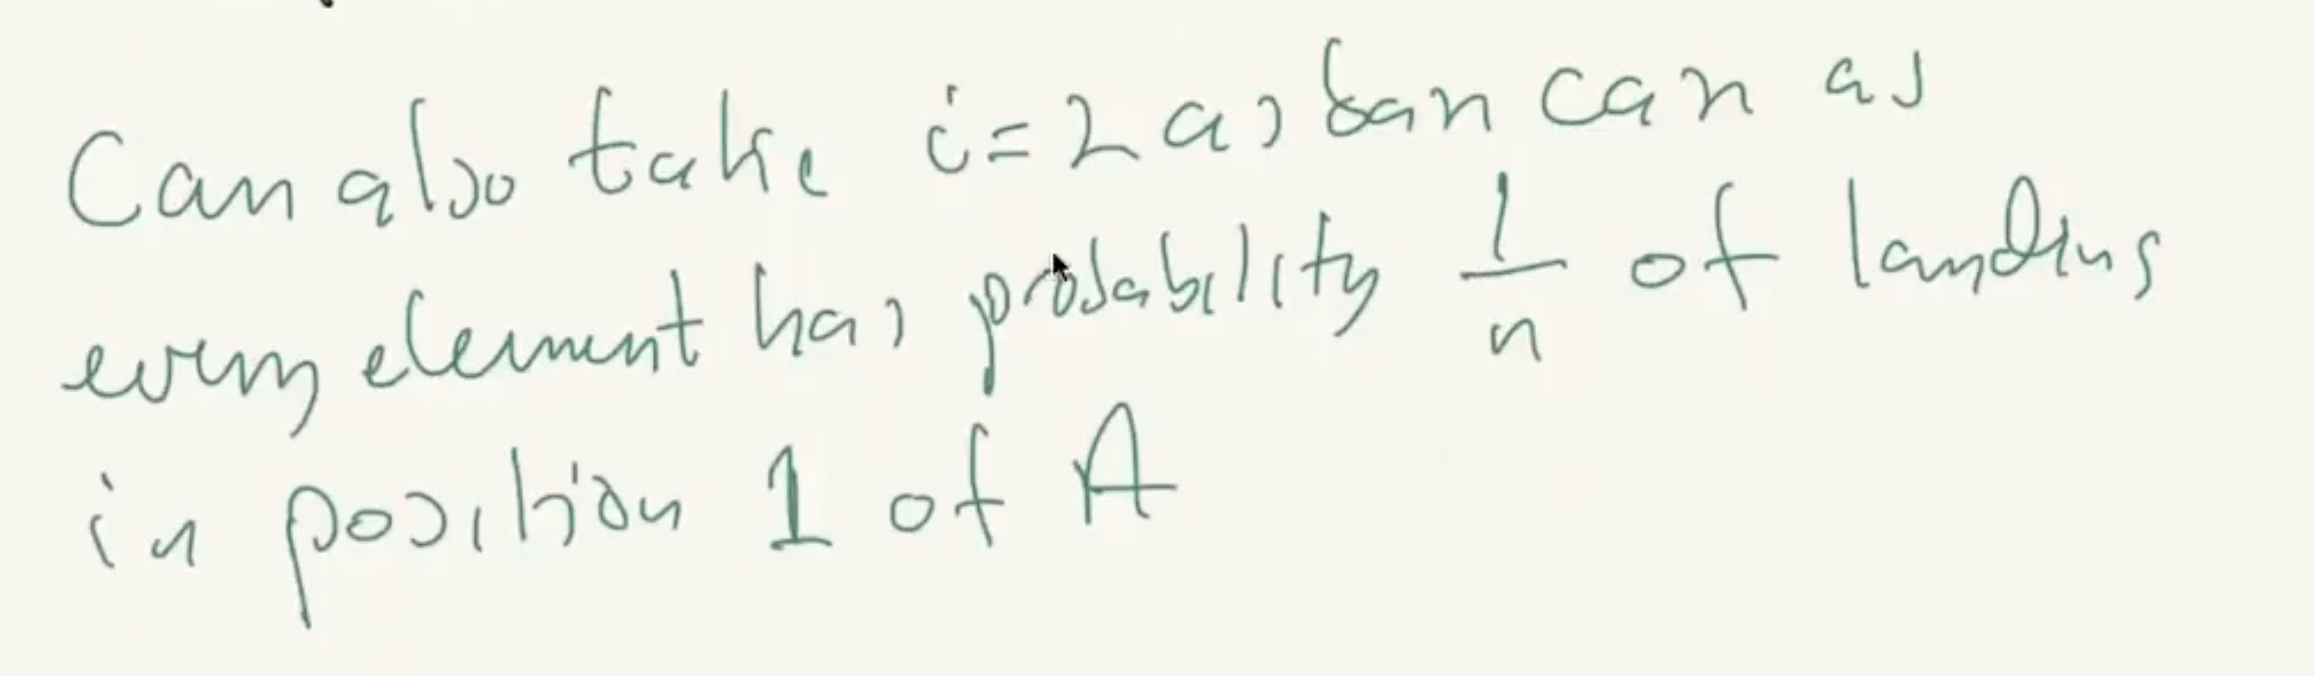 Can also take i=2 as ban can as
every element has probability 1/n of landing
in position 1 of A